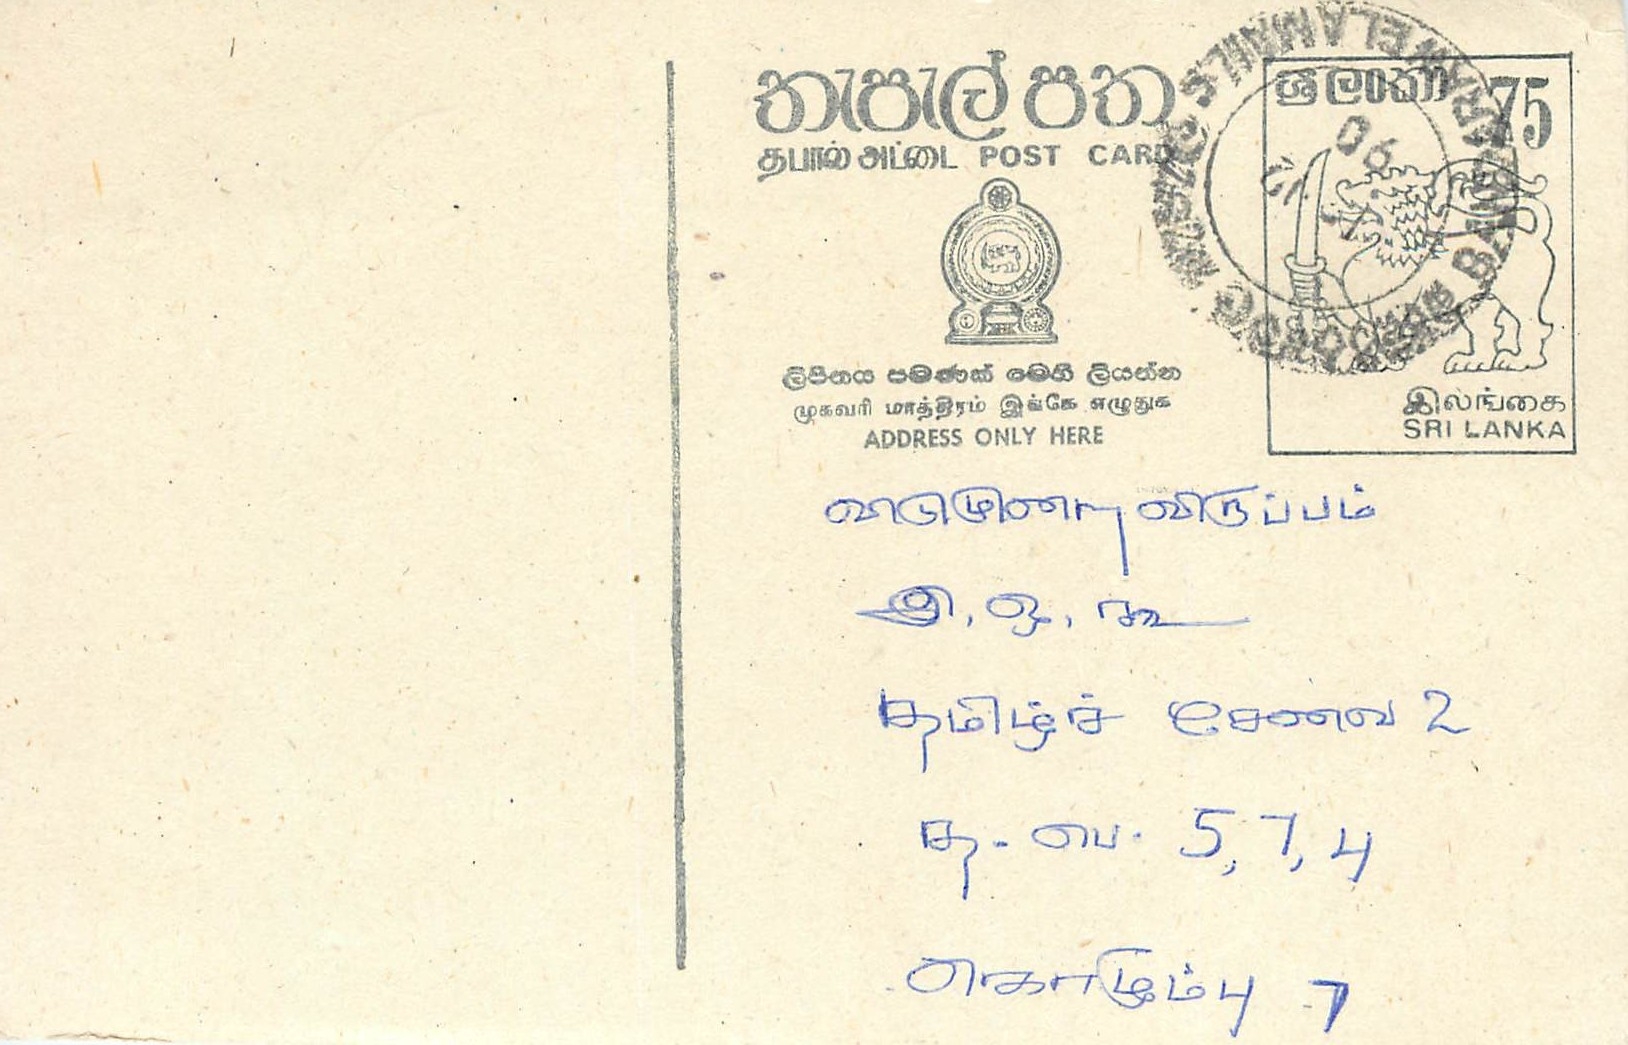 තැපැල් පත
தபால் அட்டை POST CARD
ශ්‍රී ලංකා 75
ලිපිනය පමණක් මෙහි ලියන්න
முகவரி மாத்திரம் இங்கே எழுதுக
ADDRESS ONLY HERE
இலங்கை
SRI LANKA
BANDARAWELA MAILS
விருப்பம்
இ. ஒ. கூ
தமிழ்ச் சேவை 2
த. பெ. 5, 7, 4
கொழும்பு 7